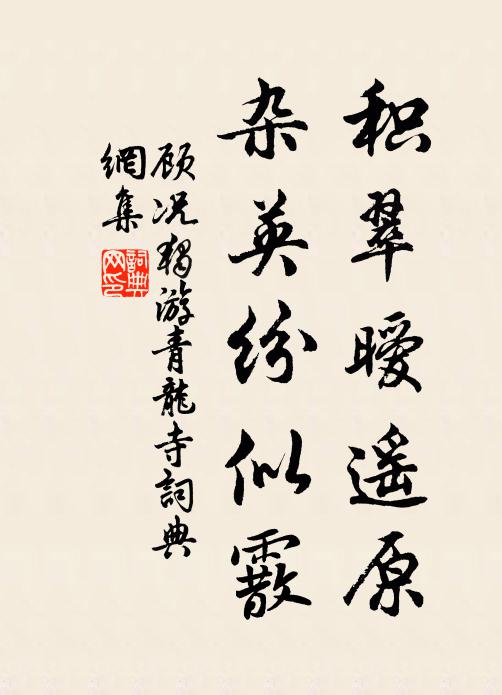 积翠暧遥原
杂英纷似霰
顾况独游青龍寺詞典
網集
詞典
网印